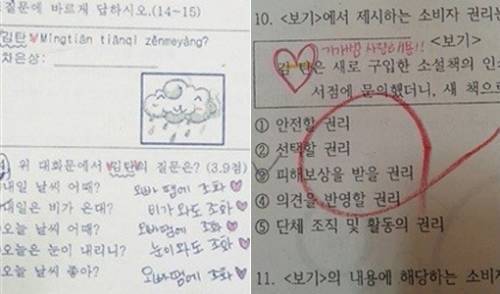 질문에 바르게 답하시오.(14~15)
김탄♥Míngtiān tiānqì zěnmeyàng?
차은상:
위 대화문에서 김탄의 질문은? (3.9점)
내일 날씨 어때? 오빠 땜에 조화♥
내일은 비가 온대? 비가 와도 조화♥
오늘 날씨 어때? 오빠땜에 조화♥
오늘은 눈이 내리니? 눈이 와도 조화♥
오늘 날씨 좋아? 오빠땜에 조화♥
10. <보기>에서 제시하는 소비자 권리는
<보기>
김탄은 새로 구입한 소설책의 인쇄
서점에 문의했더니, 새 책으로
① 안전할 권리
② 선택할 권리
③ 피해보상을 받을 권리
④ 의견을 반영할 권리
⑤ 단체 조직 및 활동의 권리
11. <보기>의 내용에 해당하는 소비자